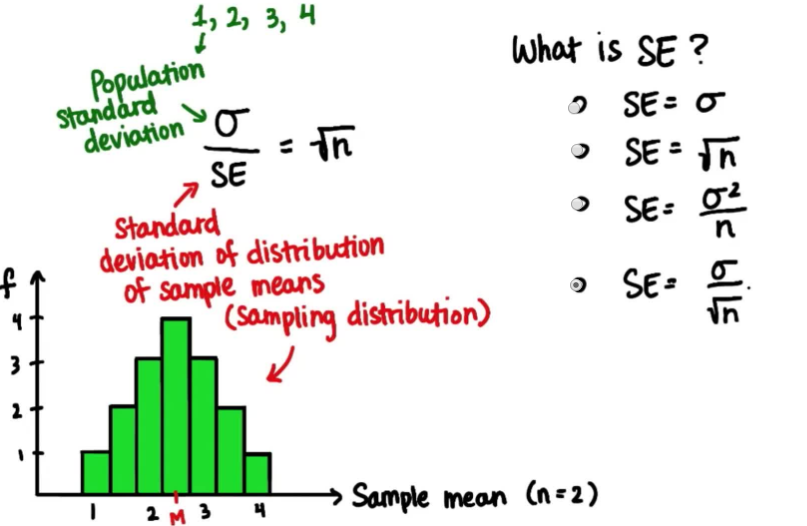 1, 2, 3, 4
Population
standard
deviation
σ
SE
= √n
Standard
deviation of distribution
of sample means
(Sampling distribution)
f
4
3
2
1
1 2 M 3 4
Sample mean (n=2)
What is SE?
SE= σ
SE= √n
SE= σ²/n
SE= σ/√n